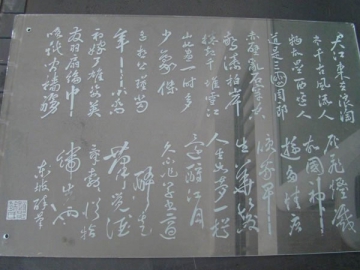 大江東去浪淘
盡千古風流人
物故壘西邊人
道是三國周郎
赤壁亂石穿空
驚濤拍岸
捲起千堆雪江
山如畫一時多
少豪傑
遙想公瑾當
年小喬
初嫁了雄姿英
發羽扇綸巾
談笑間檣櫓
灰飛煙滅
故國神
遊多情應
笑我早
生華髮
人生如夢一尊
還酹江月
久不作草書適
醉走
筆覺酒
氣勃勃從指
端出也
東坡醉筆